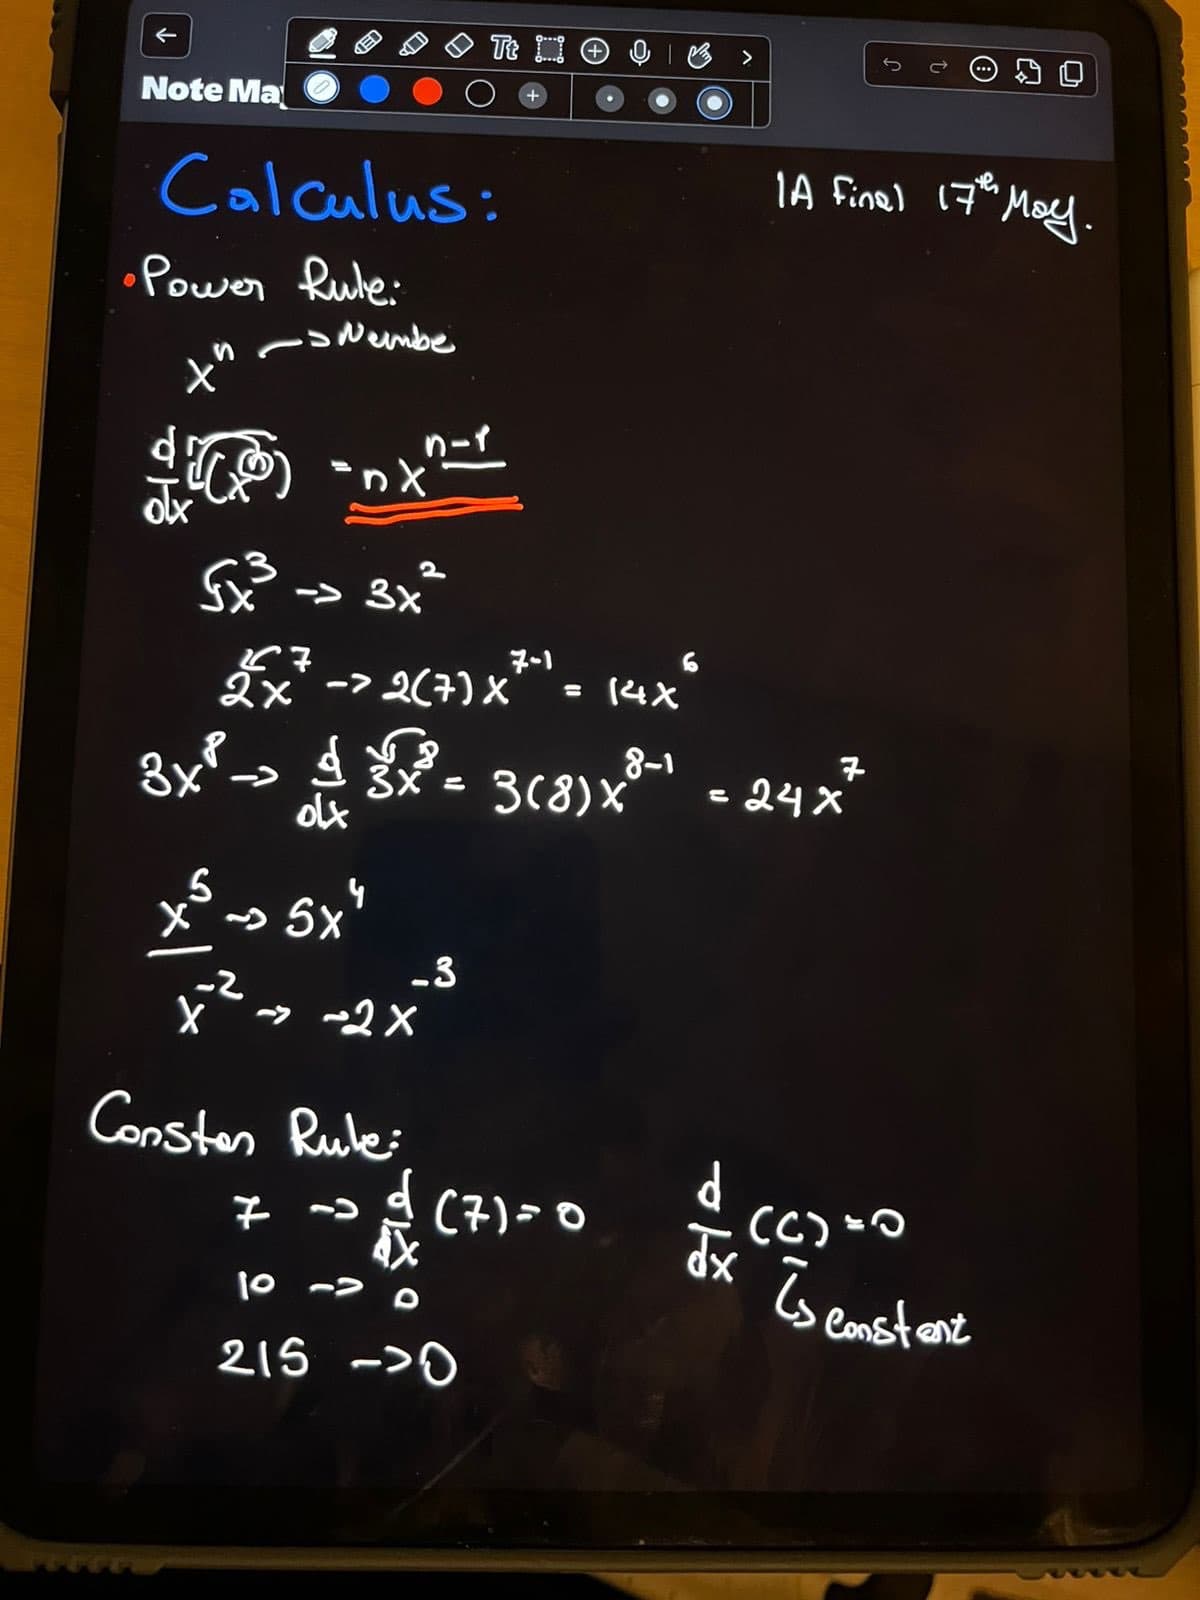 Note Ma
Tt
Calculus:
IA Final 17th May.
• Power Rule:
xⁿ -> Numbe
d/dx (xⁿ) = nxⁿ⁻¹
x³ -> 3x²
2x⁷ -> 2(7)x⁷⁻¹ = 14x⁶
3x⁸ -> d/dx 3x⁸ = 3(8)x⁸⁻¹ = 24x⁷
x⁵ -> 5x⁴
x⁻² -> -2x⁻³
Constan Rule:
7 -> d/dx (7) = 0
10 -> 0
215 -> 0
d/dx (C) = 0
↳ Constant